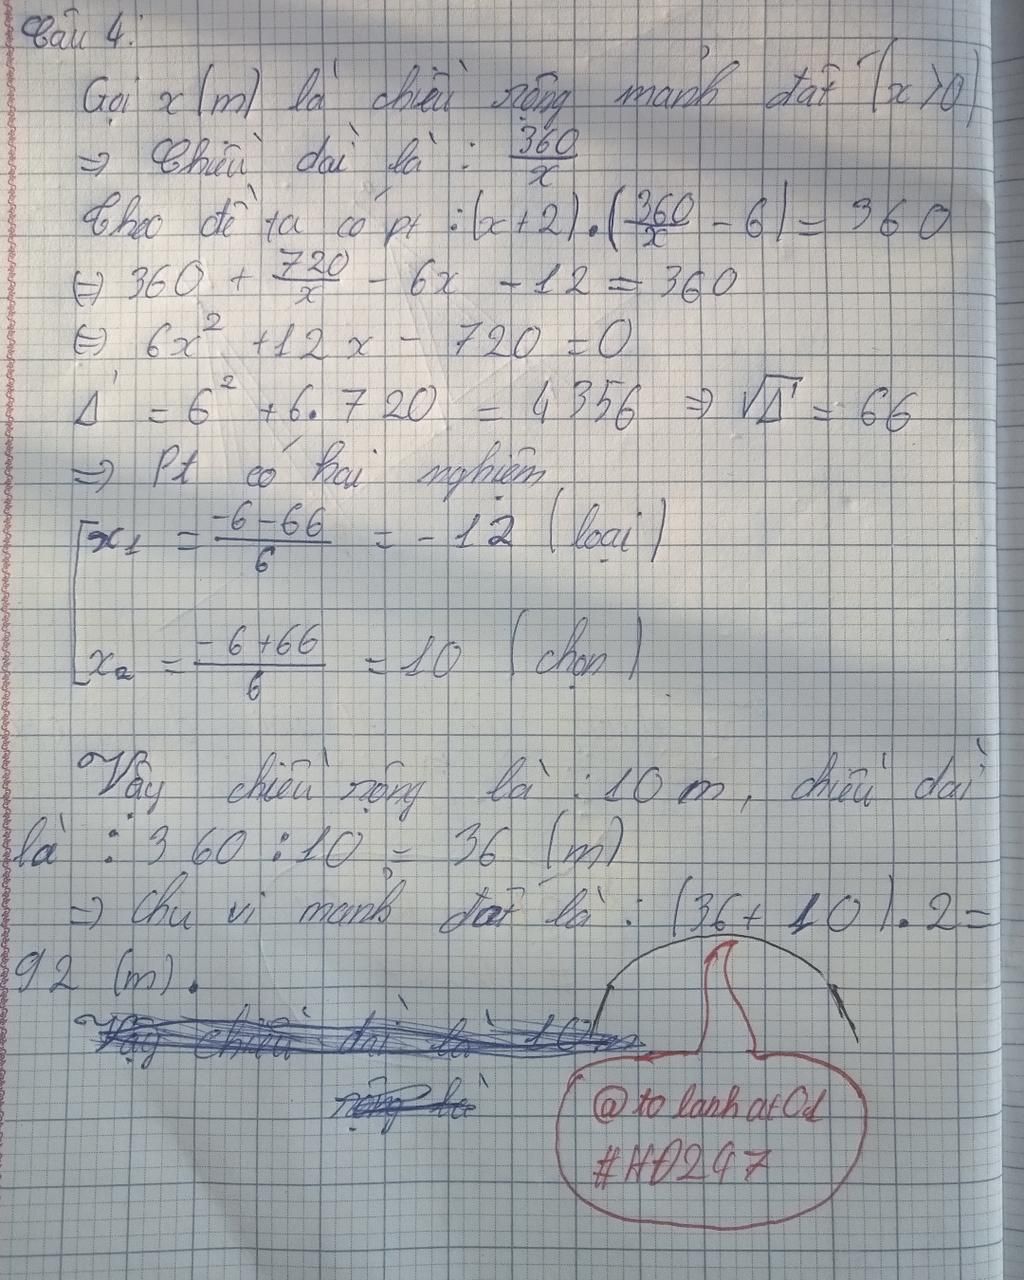 Câu 4:
Gọi x (m) là chiều rộng mảnh đất (x > 0)
⇒ Chiều dài là : 360/x
Theo đề ta có pt : (x+2).(360/x - 6) = 360
⇔ 360 + 720/x - 6x - 12 = 360
⇔ 6x² + 12x - 720 = 0
Δ' = 6² + 6.720 = 4356 ⇒ √Δ' = 66
⇒ Pt có hai nghiệm
[ x₁ = (-6-66)/6 = -12 (loại)
x₂ = (-6+66)/6 = 10 (chọn)
Vậy chiều rộng là : 10 m, chiều dài
là : 360 : 10 = 36 (m)
⇒ Chu vi mảnh đất là : (36 + 10).2 =
92 (m).
Vậy chiều dài là 10m
rộng là
@to lanh at Od
#HĐ247